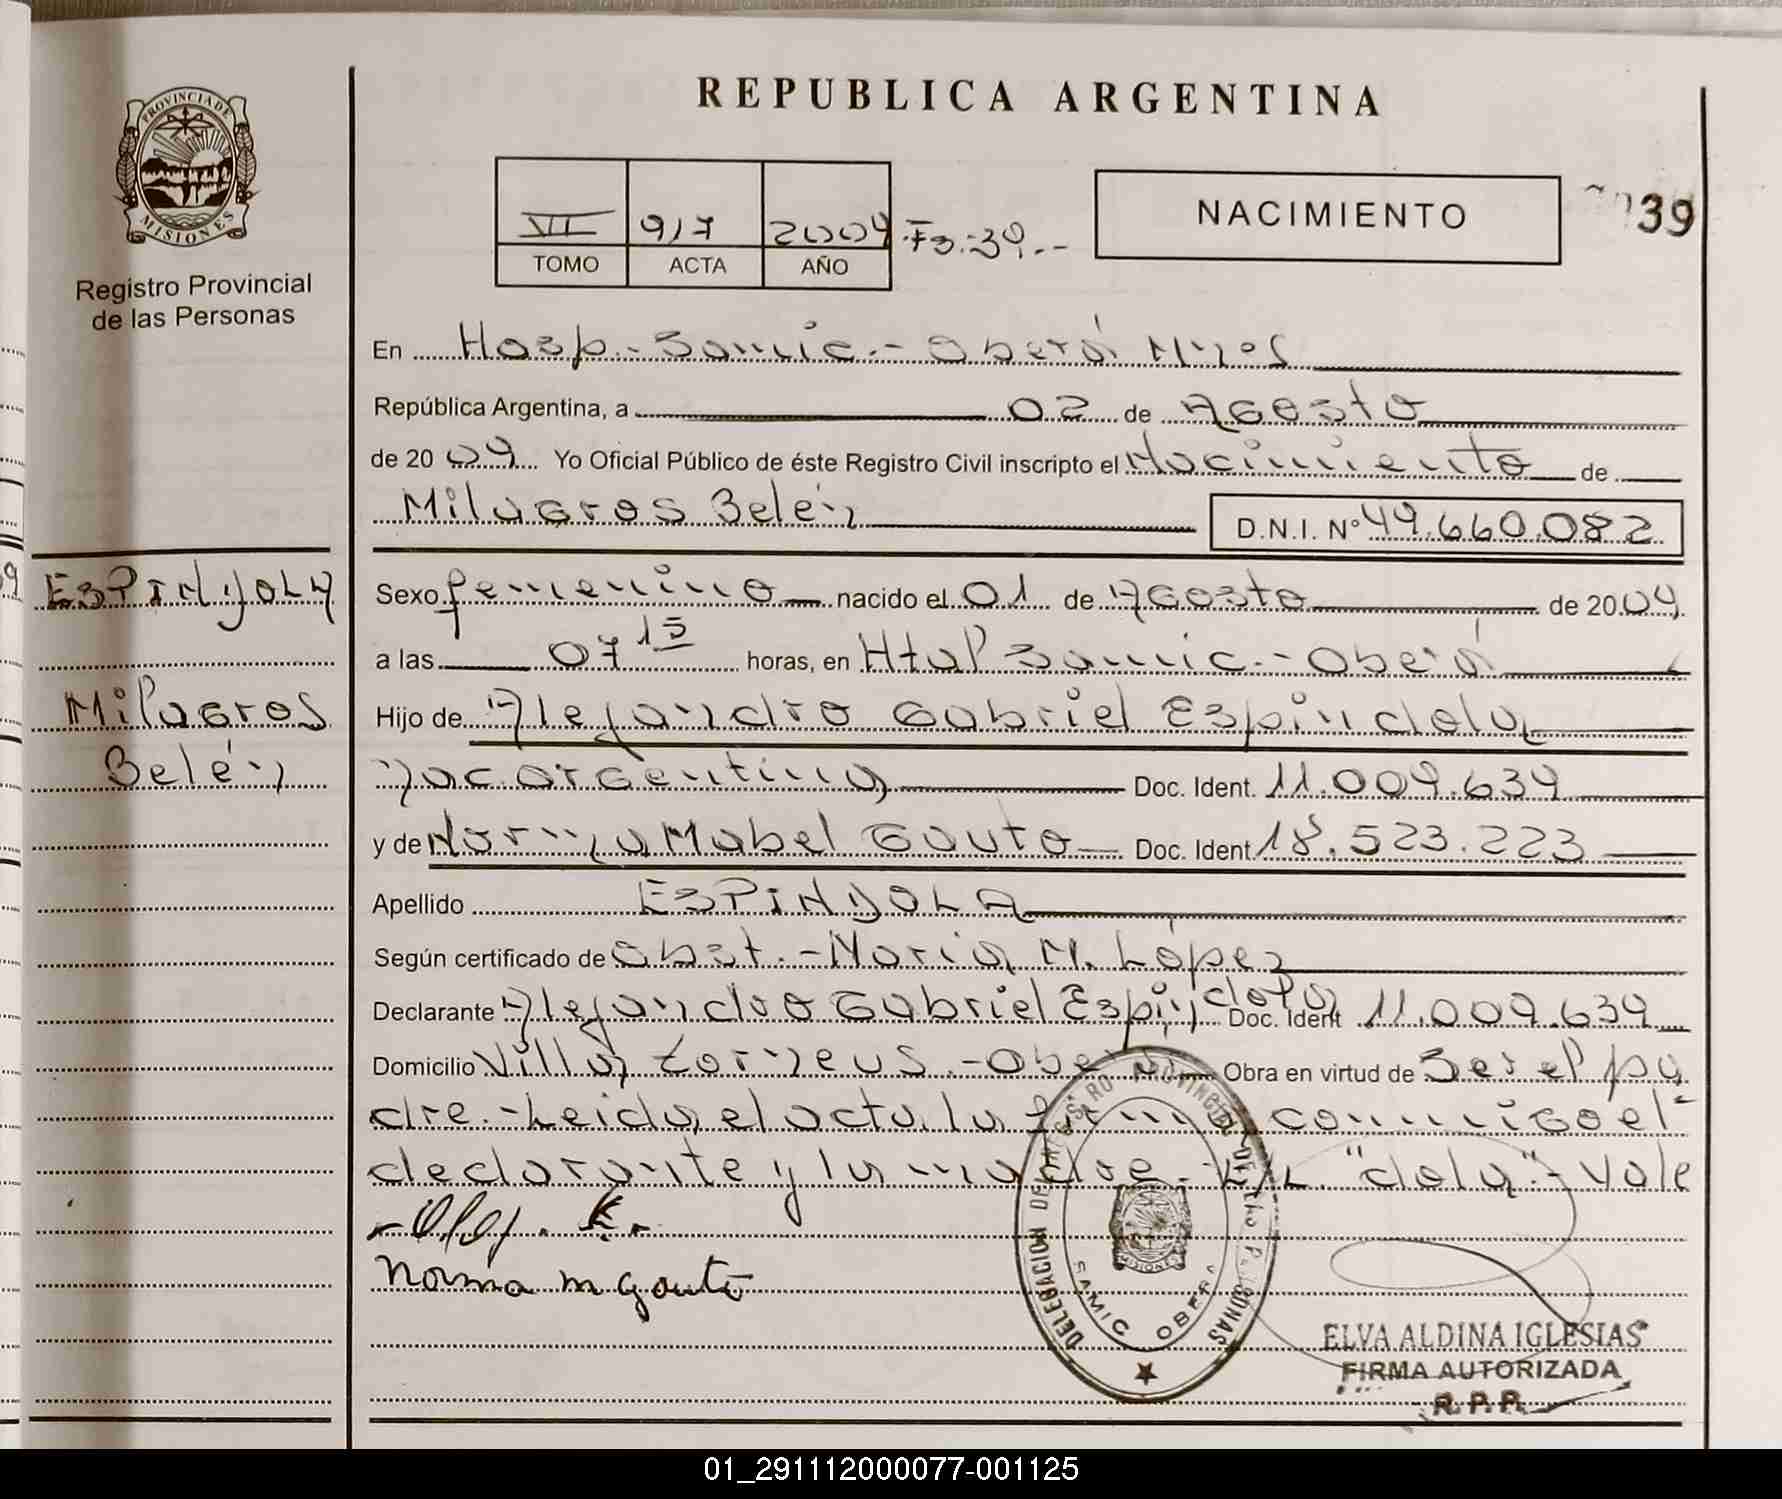 REPUBLICA ARGENTINA
PROVINCIA DE MISIONES
Registro Provincial
de las Personas
VII 917 2009 Fo:39.--
TOMO ACTA AÑO
NACIMIENTO
39
En Hosp.-Samic.-Oberá Mnes
República Argentina, a 02 de Agosto
de 2009 Yo Oficial Público de éste Registro Civil inscripto el Nacimiento de
Milagros Belén D.N.I. Nº 49.660.082
ESPINDOLA
Milagros
Belén
Sexo femenino nacido el 01 de Agosto de 2009
a las 07 15 horas, en Htal Samic.-Oberá
Hijo de Alejandro Gabriel Espindola
nac. argentina Doc. Ident. 11.009.639
y de Norma Mabel Gauto Doc. Ident 18.523.223
Apellido ESPINDOLA
Según certificado de Obst.-María M. López
Declarante Alejandro Gabriel Espindola Doc. Ident 11.009.639
Domicilio Villa Torneus.-Oberá Obra en virtud de Ser el pa
dre.-Leida el acta, la firma conmigo el
declarante y la madre. E/L. "dola".-Vale
Norma m gauto
DELEGACION DEL REGISTRO PROVINCIAL DE LAS PERSONAS
SAMIC OBERA
MISIONES
ELVA ALDINA IGLESIAS
FIRMA AUTORIZADA
R.P.P.
01_291112000077-001125